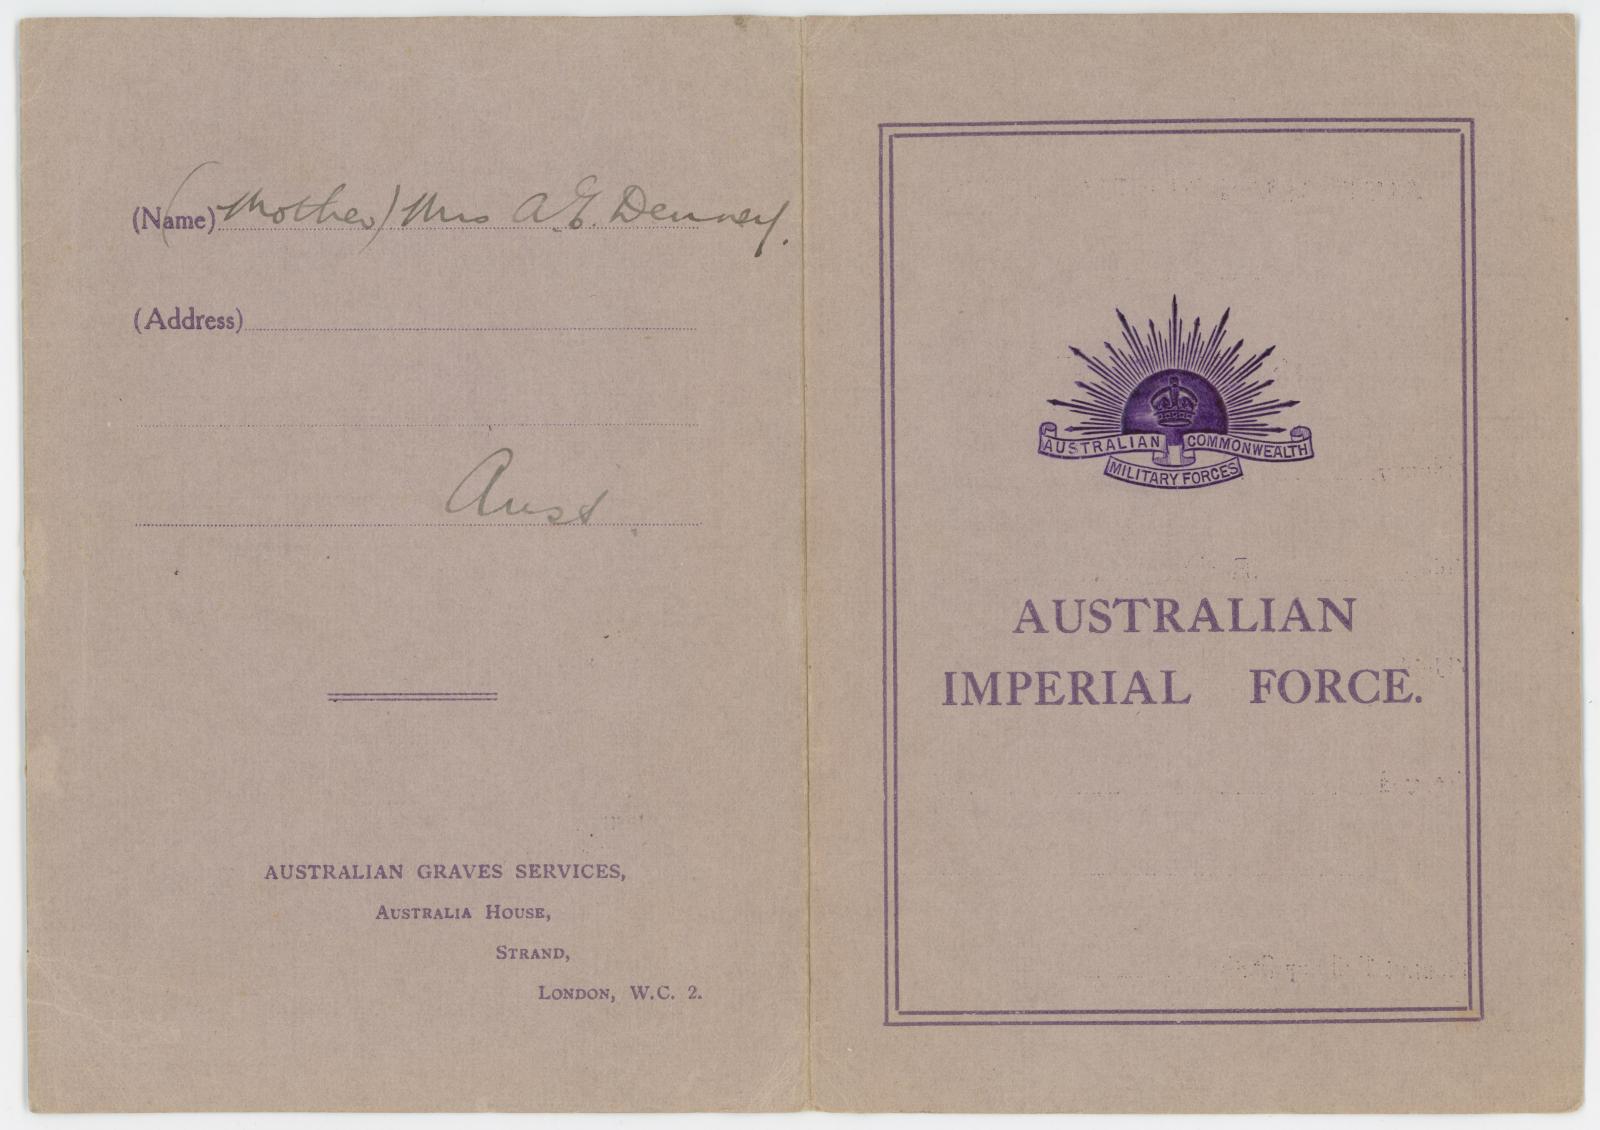 (Name) (Mother) Mrs A.E. Denney.
(Address)
Aust.
AUSTRALIAN GRAVES SERVICES,
AUSTRALIA HOUSE,
STRAND,
LONDON, W.C. 2.
AUSTRALIAN COMMONWEALTH
MILITARY FORCES
AUSTRALIAN
IMPERIAL FORCE.